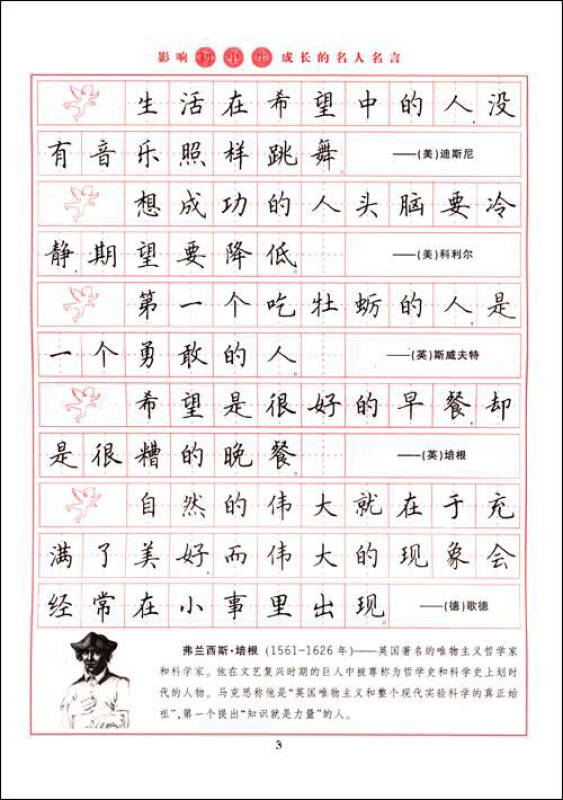 影响初中生成长的名人名言
生活在希望中的人没
有音乐照样跳舞 ——(美)迪斯尼
想成功的人头脑要冷
静。期望要降低。 ——(美)科利尔
第一个吃牡蛎的人是
一个勇敢的人。 ——(英)斯威夫特
希望是很好的早餐却
是很糟的晚餐。 ——(英)培根
自然的伟大就在于充
满了美好。而伟大的现象会
经常在小事里出现。 ——(德)歌德
弗兰西斯·培根（1561-1626年）——英国著名的唯物主义哲学家
和科学家。他在文艺复兴时期的巨人中被尊称为哲学史和科学史上划时
代的人物。马克思称他是“英国唯物主义和整个现代实验科学的真正始
祖”,第一个提出“知识就是力量”的人。
3